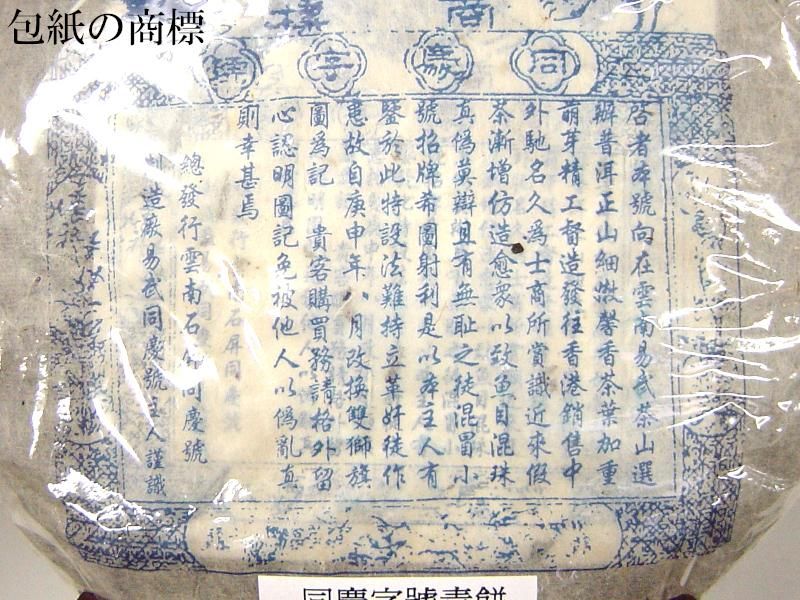 包紙の商標
商標
同慶字號
啓者本號向在雲南易武茶山選
辦普洱正山細嫩馨香茶葉加重
萌芽精工督造發往香港銷售中
外馳名久爲士商所賞識近來假
茶漸增仿造愈衆以致魚目混珠
真僞莫辯且有無恥之徒混冒小
號招牌希圖射利是以本主人有
鑒於此特設法難持立革奸徒作
患故自庚申年八月改換雙獅旗
圖爲記 貴客購買務請格外留
心認明圖記免被他人以僞亂真
則幸甚焉
總發行雲南石屏同慶號
製造廠易武同慶號主人謹識
同慶字號青餅